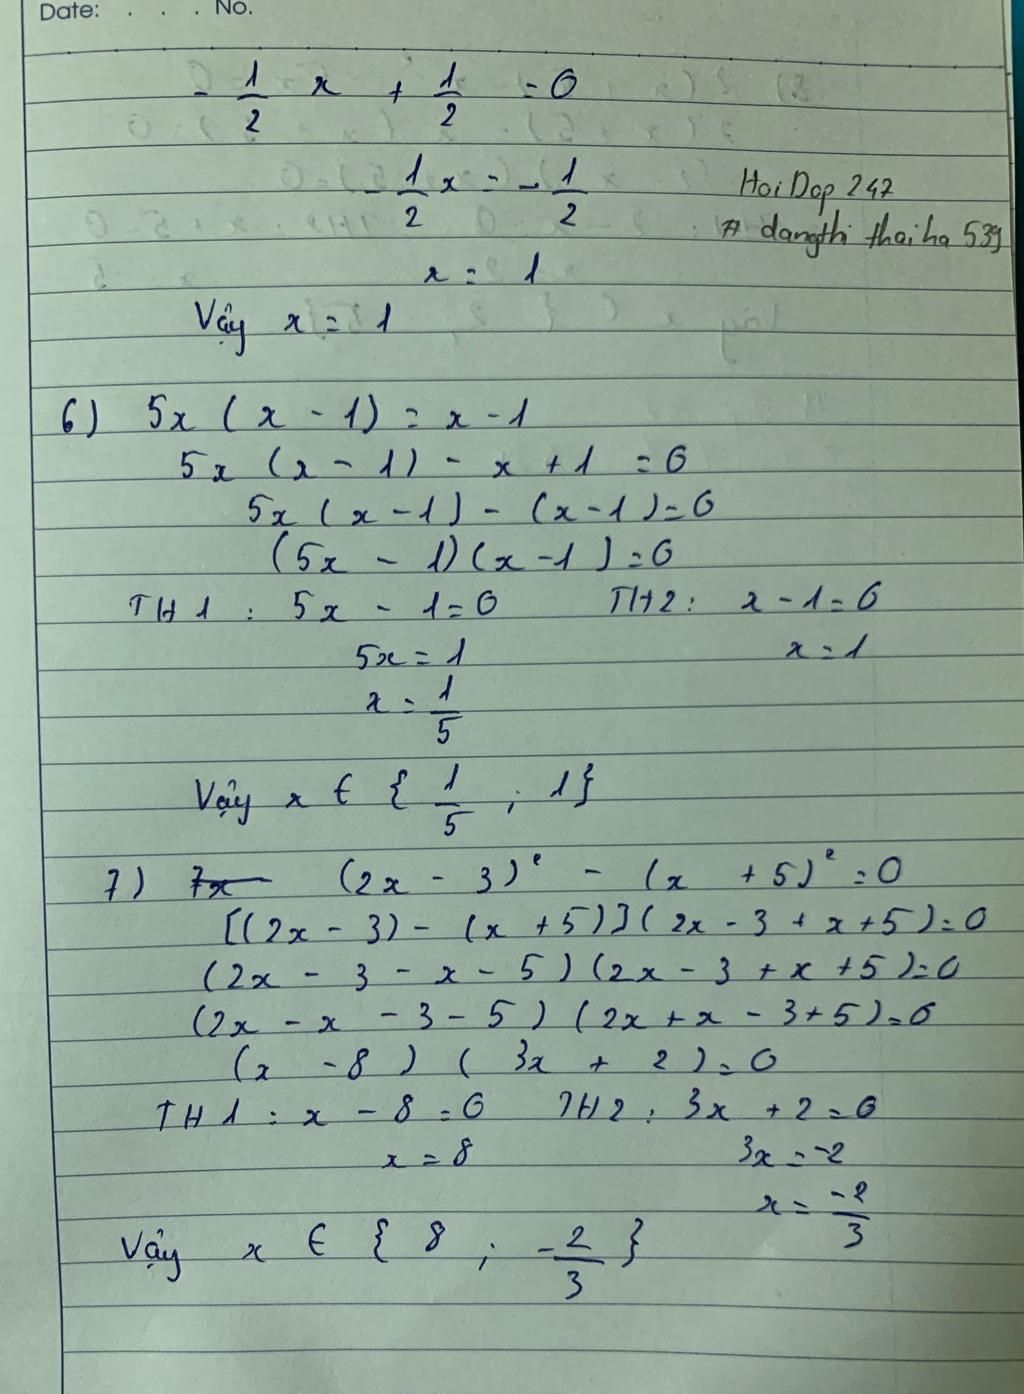 Date: . . . No.
- 1/2 x + 1/2 = 0
- 1/2 x = - 1/2
HoiDap 247
# dangthi thaiha 539
x = 1
Vậy x = 1
6) 5x (x - 1) = x - 1
5x (x - 1) - x + 1 = 0
5x (x - 1) - (x - 1) = 0
(5x - 1)(x - 1) = 0
TH1 : 5x - 1 = 0 TH2 : x - 1 = 0
5x = 1 x = 1
x = 1/5
Vậy x ∈ { 1/5 ; 1}
7) (2x - 3)² - (x + 5)² = 0
[(2x - 3) - (x + 5)](2x - 3 + x + 5) = 0
(2x - 3 - x - 5) (2x - 3 + x + 5) = 0
(2x - x - 3 - 5) (2x + x - 3 + 5) = 0
(x - 8) (3x + 2) = 0
TH1 : x - 8 = 0 TH2 : 3x + 2 = 0
x = 8 3x = -2
x = -2/3
Vậy x ∈ { 8 ; -2/3 }